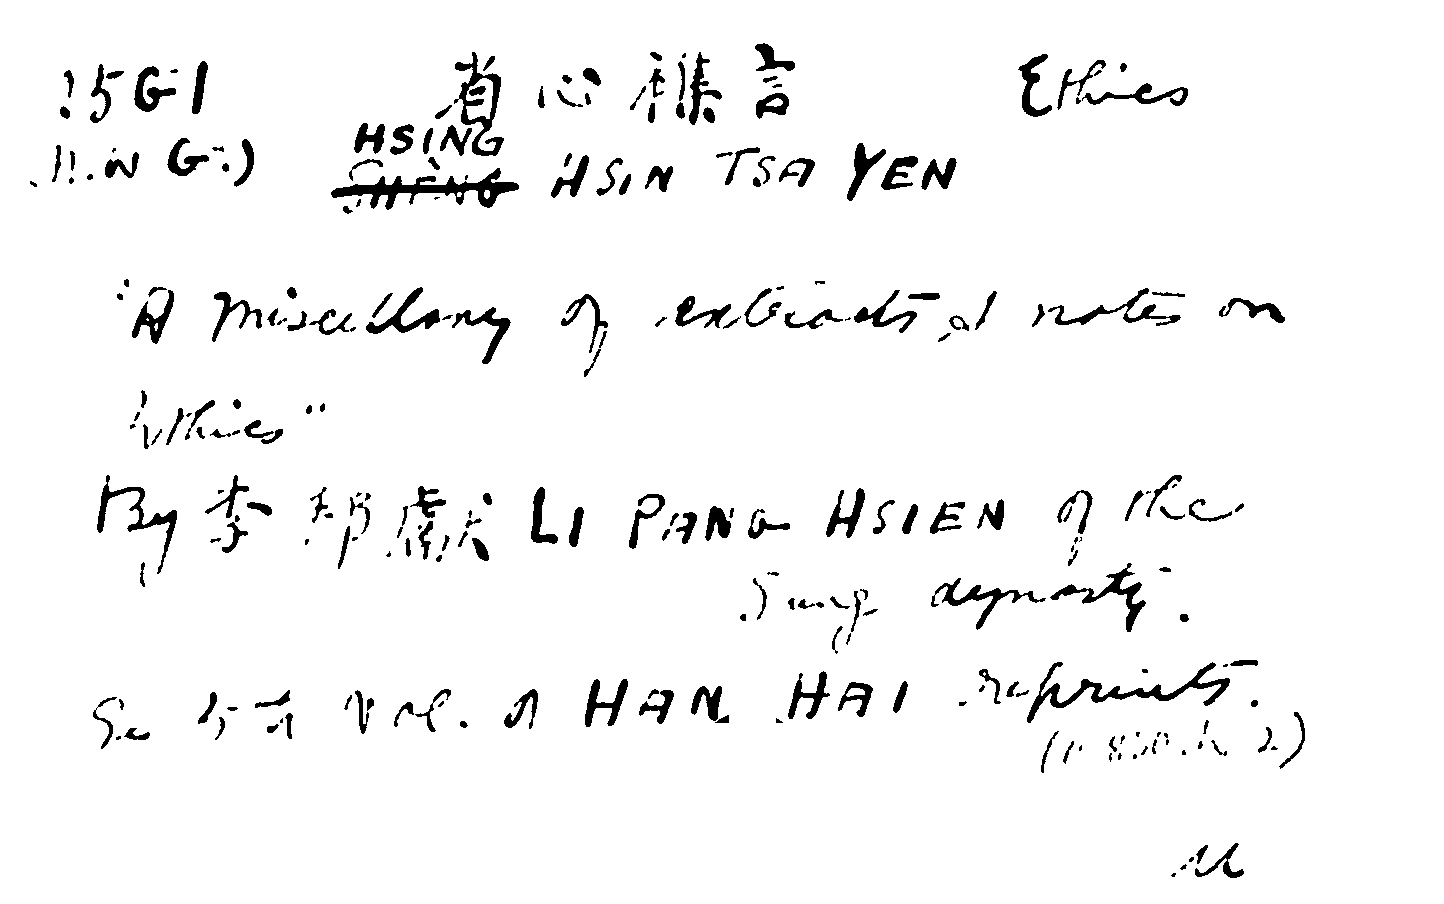 15G1 省心雜言 Ethics
HSING
SHÈNG HSIN TSA YEN
"A miscellany of extracts & notes on
Ethics"
By 李邦獻 LI PANG HSIEN of the
Sung dynasty.
See 15th Vol. of HAN HAI reprints.